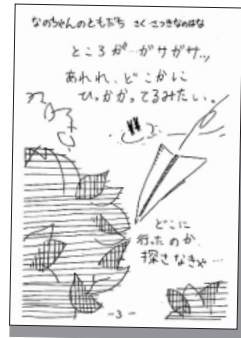 なのちゃんのともだち さく・さつきなのはな
ところが…がサガサッ
あれれ、どこかに
ひっかかってるみたい。
どこに
行ったのか
探さなきゃ…
-3-